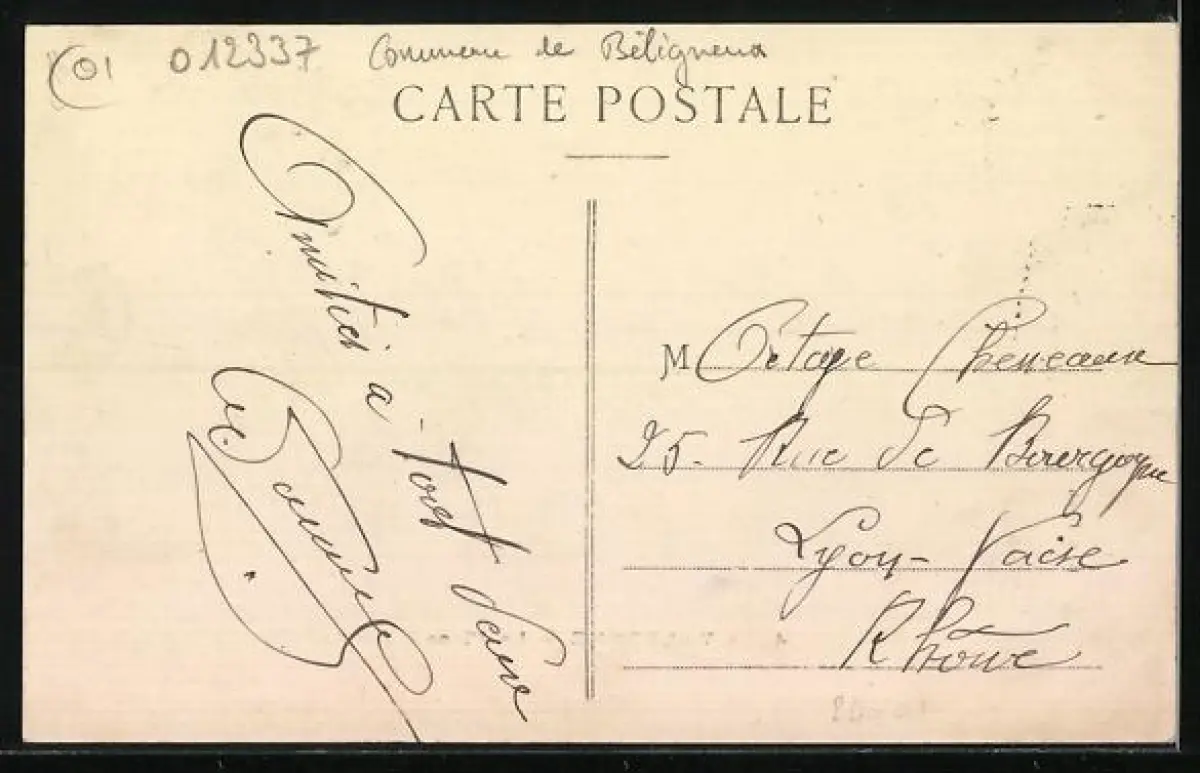 01 012337 Commune de Béligneux
CARTE POSTALE
Amitiés à tous deux
M Octave Cheneaux
25. Rue de Bourgogne
Lyon-Vaise
Rhône